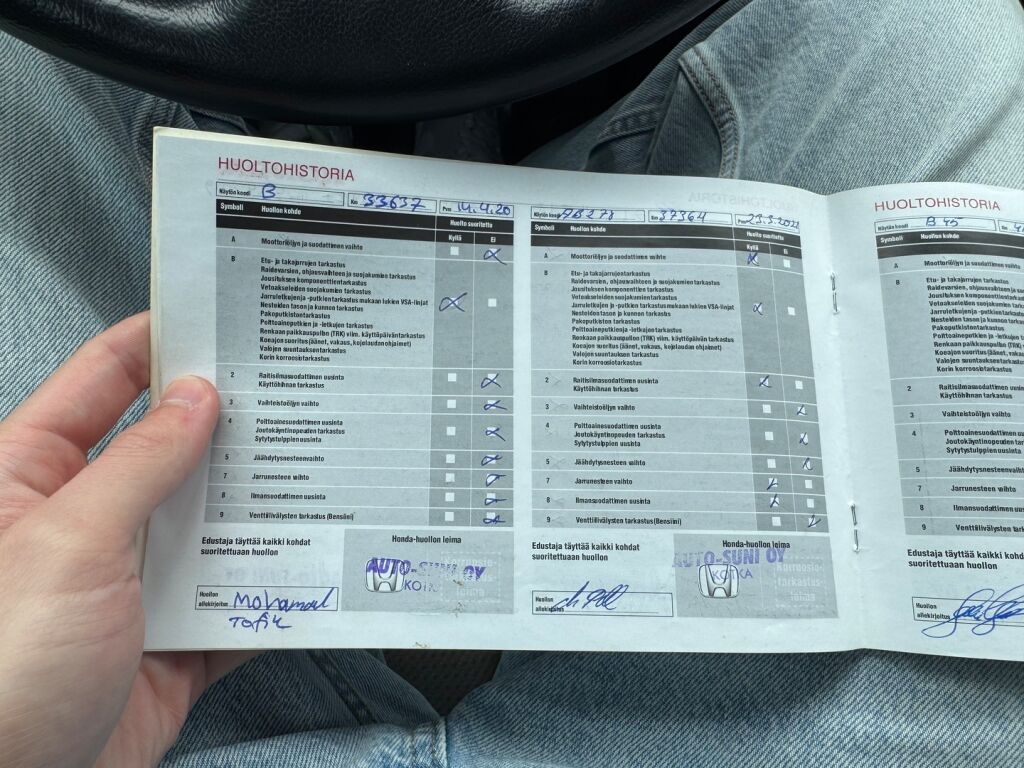 HUOLTOHISTORIA
Näytön koodi B Km 33637 Pvm 14.4.20
Symboli Huollon kohde Huolto suoritettu
Kyllä Ei
A Moottoriöljyn ja suodattimen vaihto
B Etu- ja takajarrujen tarkastus
Raidevarsien, ohjausvaihteen ja suojakumien tarkastus
Jousituksen komponenttien tarkastus
Vetoakseleiden suojakumien tarkastus
Jarruletkujen ja -putkien tarkastus mukaan lukien VSA-linjat
Nesteiden tason ja kunnon tarkastus
Pakoputkiston tarkastus
Polttoaineputkien ja -letkujen tarkastus
Renkaan paikkauspullon (TRK) viim. käyttöpäivän tarkastus
Koeajon suoritus (äänet, vakaus, kojelaudan ohjaimet)
Valojen suuntauksen tarkastus
Korin korroosiotarkastus
2 Raitisilmasuodattimen uusinta
Käyttöhihnan tarkastus
3 Vaihteistoöljyn vaihto
4 Polttoainesuodattimen uusinta
Joutokäyntinopeuden tarkastus
Sytytystulppien uusinta
5 Jäähdytysnesteen vaihto
7 Jarrunesteen vaihto
8 Ilmansuodattimen uusinta
9 Venttiilivälysten tarkastus (Bensiini)
Edustaja täyttää kaikki kohdat
suoritettuaan huollon
Honda-huollon leima
AUTO-SUNI OY
KOTKA
Huollon
allekirjoitus Mohamad
Tofik
Näytön koodi 9B278 Km 37364 Pvm 23.3.2021
Symboli Huollon kohde Huolto suoritettu
Kyllä Ei
A Moottoriöljyn ja suodattimen vaihto
B Etu- ja takajarrujen tarkastus
Raidevarsien, ohjausvaihteen ja suojakumien tarkastus
Jousituksen komponenttien tarkastus
Vetoakseleiden suojakumien tarkastus
Jarruletkujen ja -putkien tarkastus mukaan lukien VSA-linjat
Nesteiden tason ja kunnon tarkastus
Pakoputkiston tarkastus
Polttoaineputkien ja -letkujen tarkastus
Renkaan paikkauspullon (TRK) viim. käyttöpäivän tarkastus
Koeajon suoritus (äänet, vakaus, kojelaudan ohjaimet)
Valojen suuntauksen tarkastus
Korin korroosiotarkastus
2 Raitisilmasuodattimen uusinta
Käyttöhihnan tarkastus
3 Vaihteistoöljyn vaihto
4 Polttoainesuodattimen uusinta
Joutokäyntinopeuden tarkastus
Sytytystulppien uusinta
5 Jäähdytysnesteen vaihto
7 Jarrunesteen vaihto
8 Ilmansuodattimen uusinta
9 Venttiilivälysten tarkastus (Bensiini)
Edustaja täyttää kaikki kohdat
suoritettuaan huollon
Honda-huollon leima
AUTO-SUNI OY
KOTKA
Korroosio-
tarkastus-
leima
Huollon
allekirjoitus
HUOLTOHISTORIA
Näytön koodi B 45 Km
Symboli Huollon kohde
A Moottoriöljyn ja suodattimen vaihto
B Etu- ja takajarrujen tarkastus
Raidevarsien, ohjausvaihteen ja
Jousituksen komponenttien
Vetoakseleiden suojakumien
Jarruletkujen ja -putkien
Nesteiden tason ja kunnon
Pakoputkiston tarkastus
Polttoaineputkien ja
Renkaan paikkauspullon (TRK)
Koeajon suoritus (äänet,
Valojen suuntauksen tarkastus
Korin korroosiotarkastus
2 Raitisilmasuodattimen
Käyttöhihnan tarkastus
3 Vaihteistoöljyn vaihto
4 Polttoainesuodattimen
Joutokäyntinopeuden
Sytytystulppien uusinta
5 Jäähdytysnesteen vaihto
7 Jarrunesteen vaihto
8 Ilmansuodattimen uusinta
9 Venttiilivälysten
Edustaja täyttää kaikki kohdat
suoritettuaan huollon
Huollon
allekirjoitus